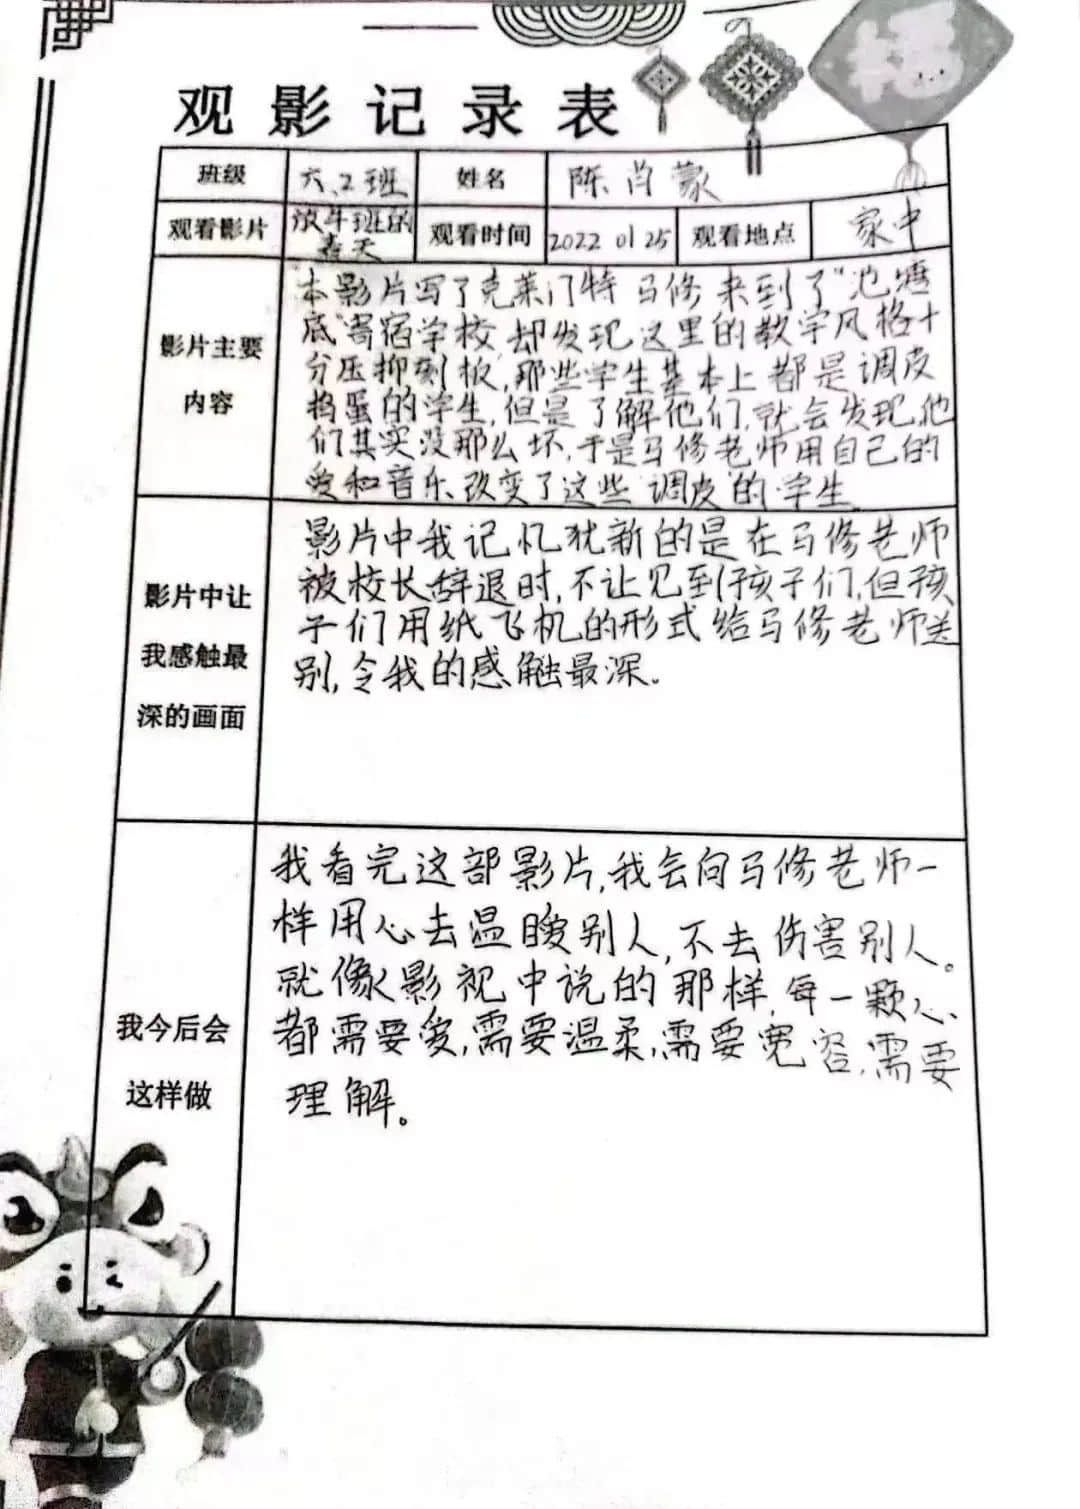 福
观影记录表
班级 六、2班 姓名 陈肖蒙
观看影片 放牛班的春天 观看时间 2022 01 25 观看地点 家中
影片主要
内容
本影片写了克莱门特 马修 来到了“池塘
底”寄宿学校,却发现这里的教学风格十
分压抑刻板,那些学生基本上都是调皮
捣蛋的学生,但是了解他们,就会发现,他
们其实没那么坏,于是马修老师用自己的
爱和音乐改变了这些“调皮”的学生.
影片中让
我感触最
深的画面
影片中我记忆犹新的是在马修老师
被校长辞退时,不让见到孩子们,但孩
子们用纸飞机的形式给马修老师送
别,令我的感触最深。
我今后会
这样做
我看完这部影片,我会向马修老师一
样用心去温暖别人,不去伤害别人。
就像影视中说的那样,每一颗心
都需要爱,需要温柔,需要宽容,需要
理解。